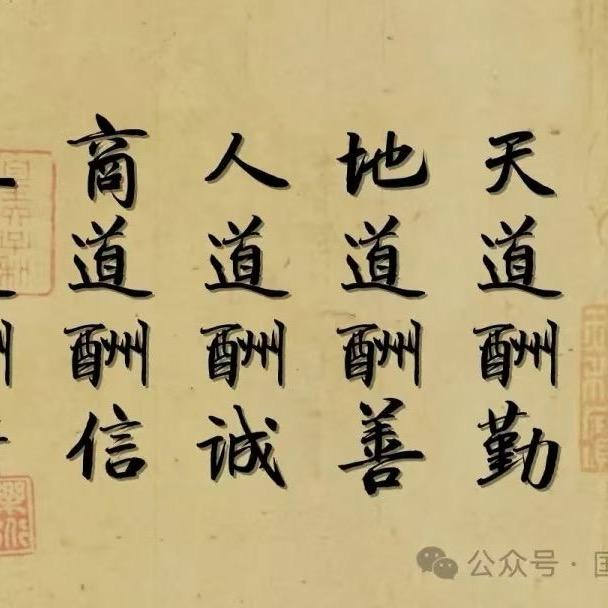 天道酬勤
地道酬善
人道酬诚
商道酬信
公众号·国